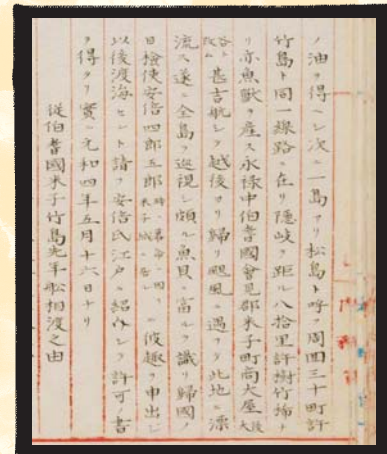 ノ油ヲ得ヘシ次ニ一島アリ松島ト呼フ周回三十町許
竹島ト同一線路ニ在リ隠岐ヲ距ル八拾里許樹竹稀ナ
リ亦魚獣ヲ産ス永禄中伯耆國會見郡米子町商大屋後大
谷ト改ム甚吉航シテ越後ヨリ歸リ颶風ニ遇フテ此地ニ漂
流ス遂ニ全島ヲ巡視シ頗ル魚貝ニ富ルヲ識リ歸國ノ
日檢使安倍四郎五郎時ニ幕命ニ因リ米子城ニ居ルニ彼趣ヲ申出シ
以後渡海セント請フ安倍氏江戸ニ紹介シテ許可ノ書
ヲ得タリ實ニ元和四年五月十六日ナリ
從伯耆國米子竹島先年船相渡之由